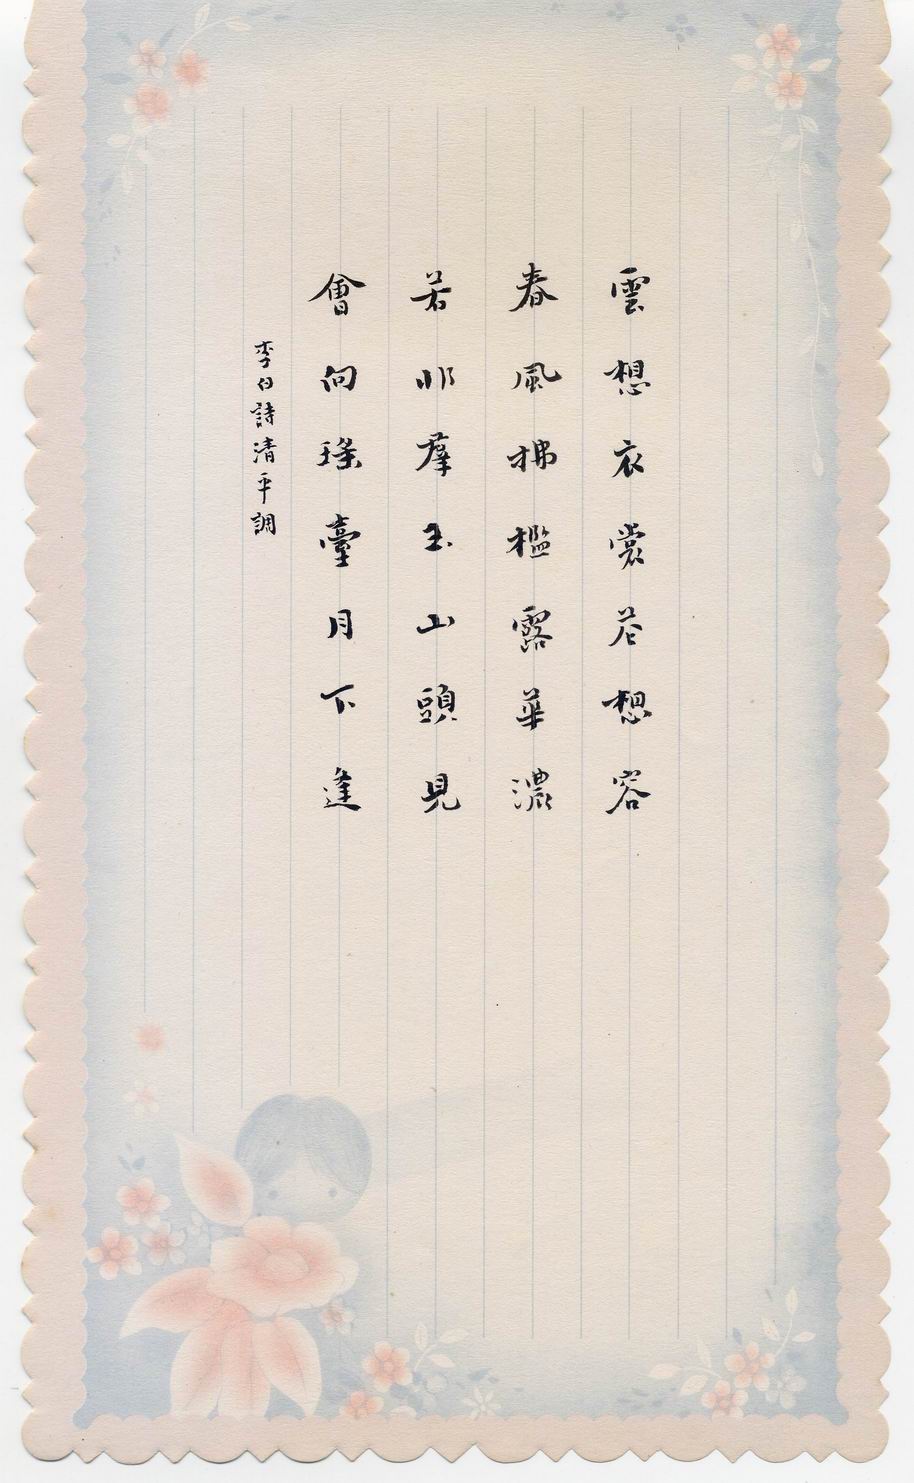 雲想衣裳花想容
春風拂檻露華濃
若非羣玉山頭見
會向瑤臺月下逢
李白詩清平調